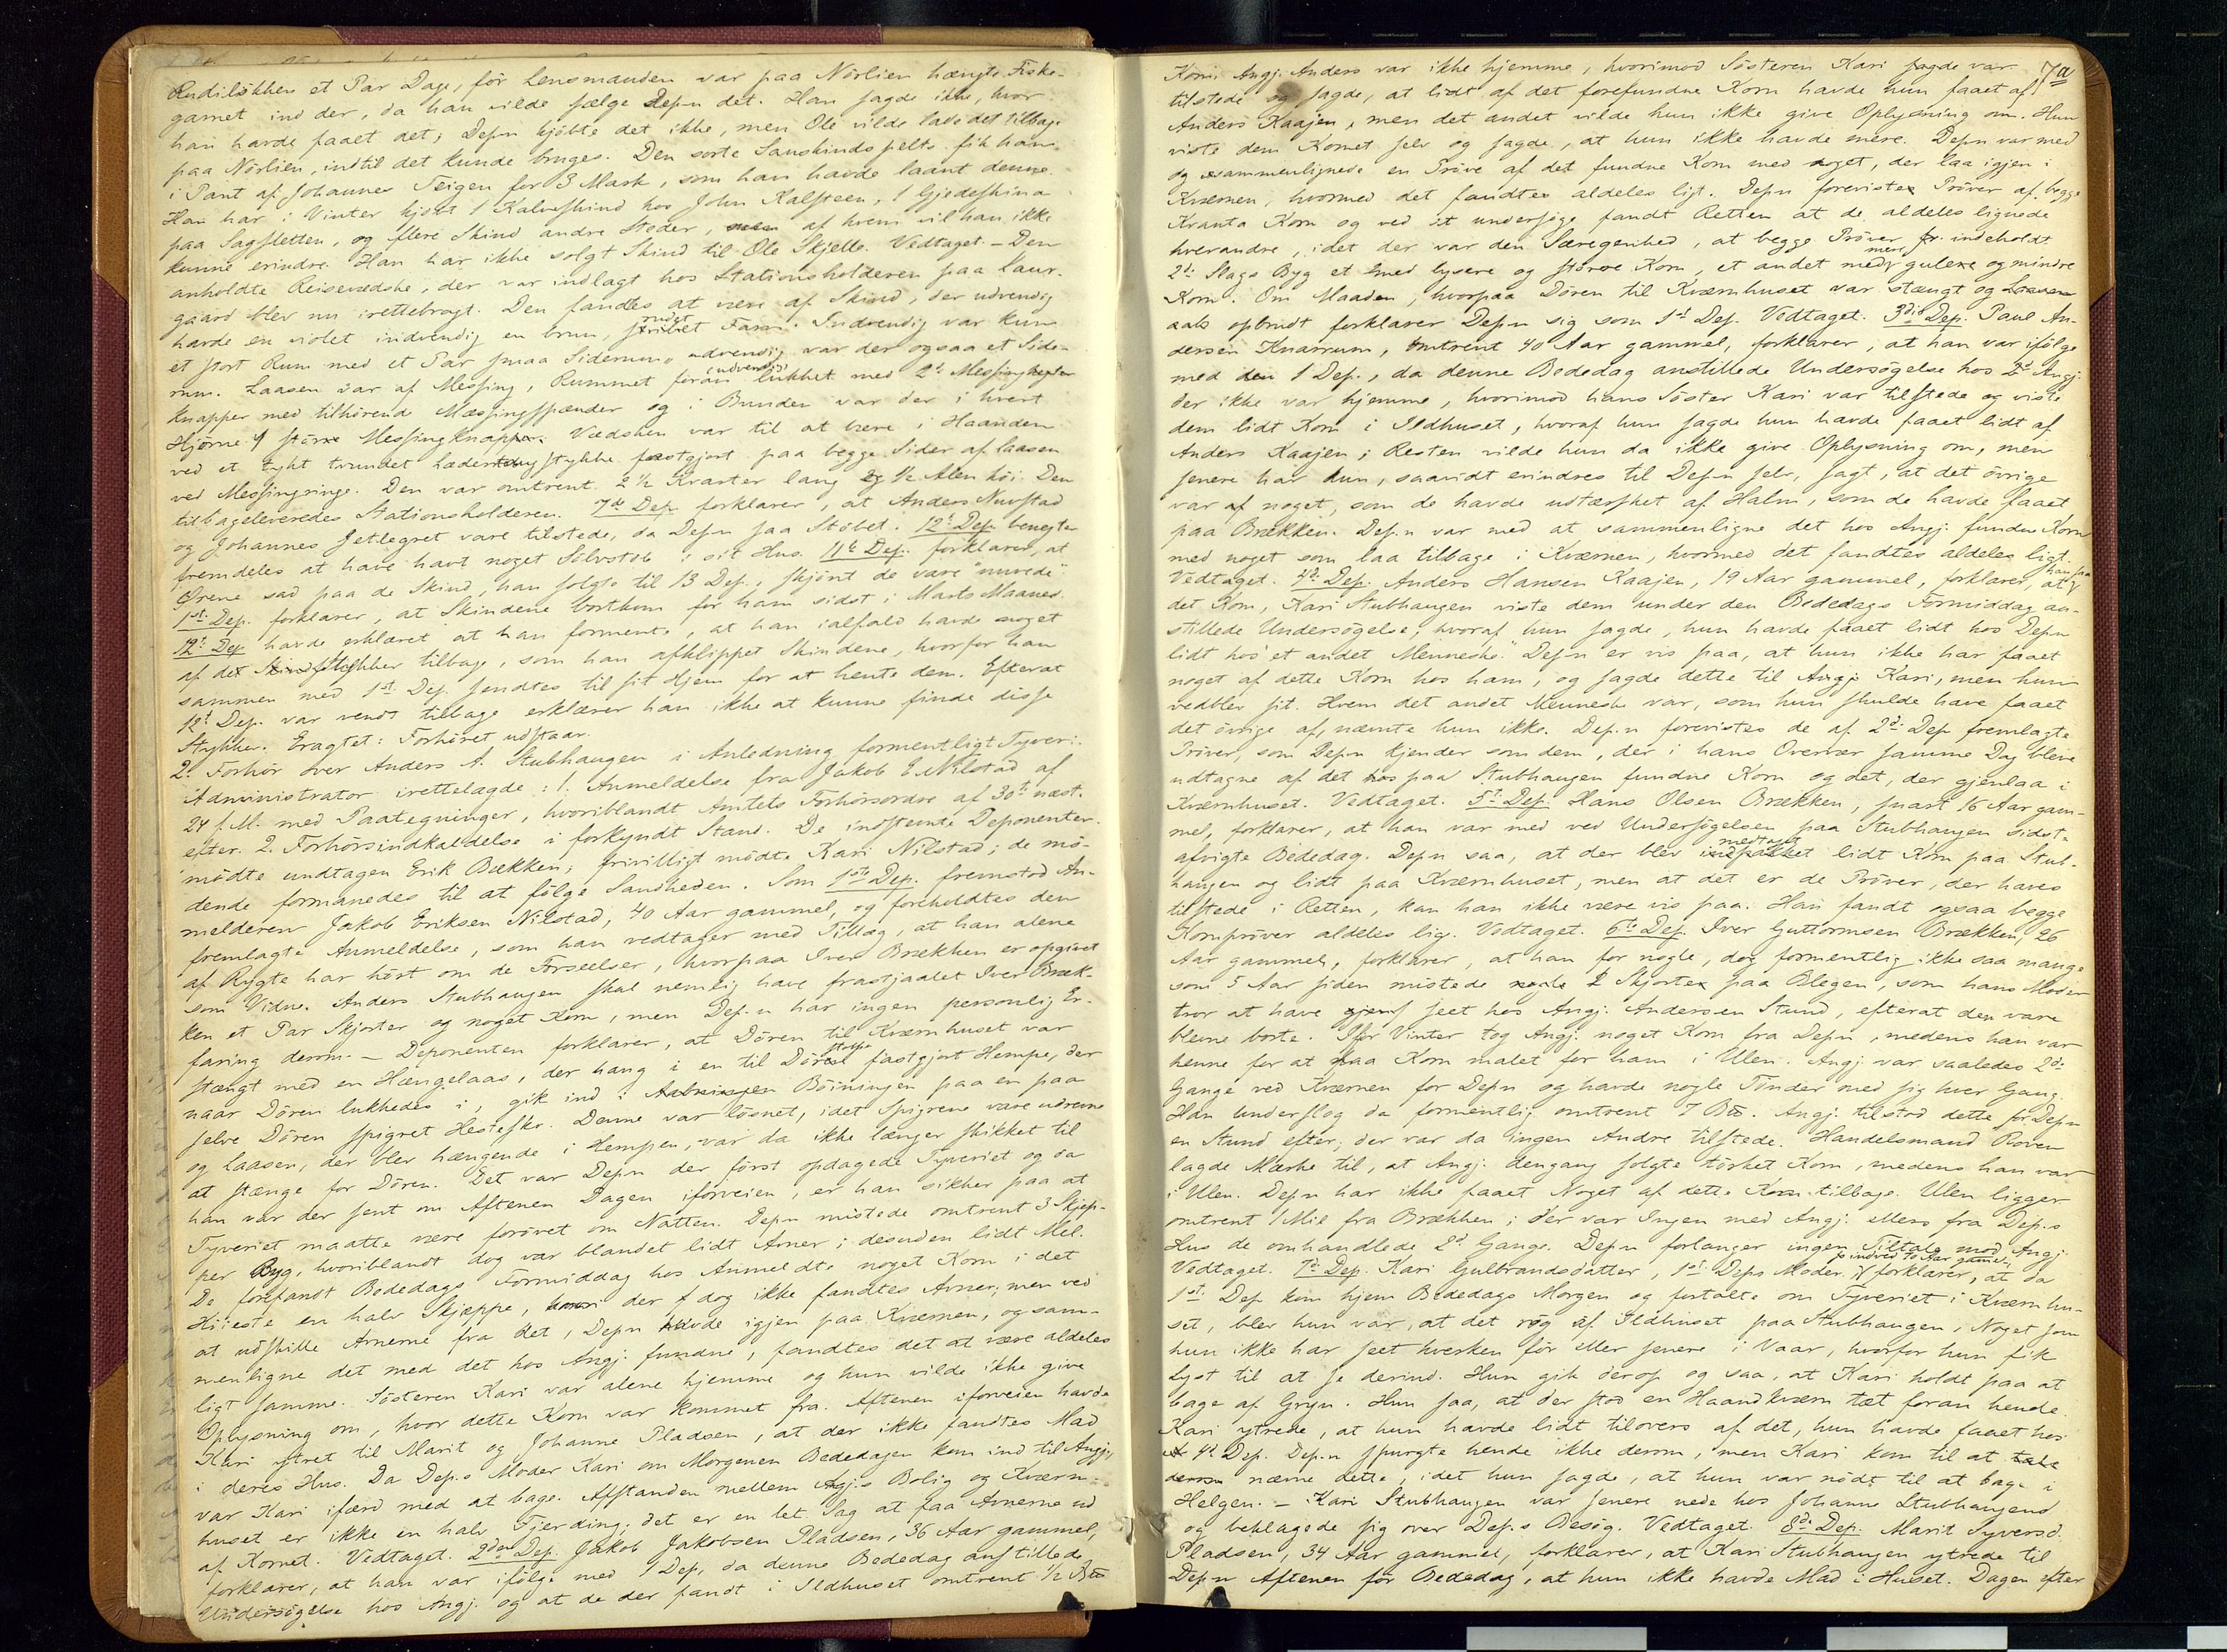 Rudiløkken et Par Dage, før Lensmanden var paa Nørlien hængte Fiske-
garnet ind der, da han vilde sælge Dep-n det. Han sagde ikke, hvor
han havde faaet det; Dep-n kjöbte det ikke, men Ole vilde lade det tilbage
paa Nørlien, indtil det kunde bruges. Den sorte Saueskinds pelts fik han
i Pant af Johannes Teigen for 3 Mark, som han havde laant denne.
Han har i Vinter kjöbt 1 Kalveskind hos John Kalsteen, 1 Gjedeskind
paa Sagsletten, og flere Skind andre Steder, men af hvem vil han ikke
kunne erindre. Han har ikke solgt Skind til Ole Skjelle. Vedtaget. – Den
anholdte Reisevædske, der var indlagt hos Stationsholderen paa Laur-
gaard blev nu irettebragt. Den fandtes at være af Skind, der udvendig
havde en violet indvendig en brun, rudet stribet Farve. Indvendig var kun
et stort Rum med et Par smaa Siderum, udvendig var der ogsaa et Side-
rum. Laasen var af Messing, Rummet foran (udvendig) lukket med 2de Messing
knapper med tilhörende Mæssingspænder og i Bunden var der i hvert
Hjörne 4 større Messingknapper. Vædsken var til at bære i Haanden
ved et tykt tvundet Læderstykke fastgjort paa begge Sider af Laasen
ved Messingringe. Den var omtrent 2 1/2 Kvarter lang og 1/2 Alen höi. Den
tilbageleveredes Stationsholderen. 7de Dep. forklarer, at Anders Nuvstad
og Johannes Jetlegret vare tilstede, da Dep-n saa Stöbet. 12t Dep. benegter
fremdeles at have havt noget Sölvstöb i sit Hus. 11te Dep. forklarer, at
Örene sad paa de Skind, han solgte til 13 Dep., skjönt de vare "nuvede"
1ste Dep. forklarer, at Skindene bortkom for ham sidst i Marts Maaned.
12t Dep. havde erklæret at han formente, at han ialfald havde noget
af det Stykker tilbage, som han afklippet Skindene, hvorfor han
sammen med 1st Dep. sendtes til sit Hjem for at hente dem. Efterat
12t Dep. var vendt tilbage erklærer han ikke at kunne finde disse
Stykker. Eragtet: Forhöret udstaar.
2. Forhör over Anders A. Stubhaugen i Anledning formentligt Tyveri.
Administrator irettelagde: 1. Anmeldelse fra Jakob E. Nilstad af
24 f. M. med Paategninger, hvoriblandt Amtets Forhörsordre af 30te næst-
efter. 2. Forhörsindkaldelse i forkyndt Stand. De indstevnte Deponenter
mödte undtagen Erik Bækken; frivilligt mödte Kari Nilstad; de mö-
dende formanedes til at fölge Sandheden. Som 1ste Dep. fremstod An-
melderen Jakob Eriksen Nilstad, 40 Aar gammel, og foreholdtes den
fremlagte Anmeldelse, som han vedtager med Tillæg, at han alene
af Rygte har hört om de Forseelser, hvorpaa Iver Brækken er opgivet
som Vidne. Anders Stubhaugen skal nemlig have frastjaalet Iver Bræk-
ken et Par Skjorter og noget Korn, men Dep-n har ingen personlig Er-
faring derom. – Deponenten forklarer, at Dören til Kværnhuset var
stængt med en Hængelaas, der hang i en til Dörstolpen fastgjort Hempe, der
naar Dören lukkedes i, gik ind i Böiningen paa en paa
selve Dören spigret Hestesko. Denne var lösnet, idet Spigrene vare udrevne
og Laasen, der blev hængende i Hempen, var da ikke længer skikket til
at stænge for Dören. Det var Dep-n der först opdagede Tyveriet og da
han var der sent om Aftenen Dagen iforveien, er han sikker paa at
Tyveriet maatte være forövet om Natten. Dep-n mistede omtrent 3 Skjep-
per Byg, hvoriblandt dog var blandet lidt Avner; desuden lidt Mel.
De forefandt Bededags Formiddag hos Anmeldte noget Korn i det
Höieste en halv Skjæppe, hvori der dog ikke fandtes Avner; men ved
at udskille Avnerne fra det, Dep-n havde igjen paa Kværnen, og sam-
menligne det med det hos Angj. fundne, fandtes det at være aldeles
ligt samme. Sösteren Kari var alene hjemme og hun vilde ikke give
Oplysning om, hvor dette Korn var kommet fra. Aftenen iforveien havde
Kari ytret til Marit og Johanne Pladsen, at der ikke fandtes Mad
i deres Hus. Da Dep.s Moder Kari om Morgenen Bededagen kom ind til Angj.,
var Kari ifærd med at bage. Afstanden mellem Angj.s Bolig og Kværn-
huset er ikke en halv Fjerding; det er en let Sag at faa Avnerne ud
af Kornet. Vedtaget. 2den Dep. Jakob Jakobsen Pladsen, 36 Aar gammel,
forklarer, at han var ifölge med 1 Dep, da denne Bededag anstillede
Undersögelse hos Angj. og at de der fandt i Ildhuset omtrent 1/2
7a
Korn. Angj. Anders var ikke hjemme, hvorimod Sösteren Kari sagde var
tilstede og sagde, at lidt af det forefundne Korn havde hun faaet af
Anders Kaajen, men det andet vilde hun ikke give Oplysning om. Hun
viste dem Kornet selv og sagde, at hun ikke havde mere. Dep-n var med
og sammenlignede en Pröve af det fundne Korn med noget, der laa igjen i
Kværnen, hvormed det fandtes aldeles ligt. Dep-n forevistes Pröver af begge
Kvanta Korn og ved at undersöge fandt Retten at de aldeles lignede
hverandre, idet der var den Særegenhed, at begge Pröver indeholdt
2de Slags Byg et med lysere og större Korn, et andet med mere gulere og mindre
Korn. Om Maaden, hvorpaa Dören til Kværnhuset var stængt og
opbrudt forklarer Dep-n sig som 1st Dep. Vedtaget. 3die Dep. Paul An-
dersen Knarrum, omtrent 40 Aar gammel, forklarer, at han var ifölge
med den 1 Dep., da denne Bededag anstillede Undersögelse hos Angj.
der ikke var hjemme, hvorimod hans Söster Kari var tilstede og viste
dem lidt Korn i Ildhuset, hvoraf hun sagde hun havde faaet lidt af
Anders Kaajen; Resten vilde hun da ikke give Oplysning om, men
senere har hun, saavidt erindres til Dep-n selv, sagt, at det övrige
var af noget, som de havde udtærsket af Halm, som de havde faaet
paa Brækken. Dep-n var med at sammenligne det hos Angj. fundne Korn
med noget som laa tilbage i Kværnen, hvormed det fandtes aldeles ligt.
Vedtaget. 4de Dep. Anders Hansen Kaajen, 19 Aar gammel, forklarer, at han saa
det Korn, Kari Stubhaugen viste dem under den Bededags Formiddag an-
stillede Undersögelse, hvoraf hun sagde, hun havde faaet lidt hos Dep-n
lidt hos "et andet Menneske." Dep-n er vis paa, at hun ikke har faaet
noget af dette Korn hos ham, og sagde dette til Kari, men hun
vedblev sit. Hvem det andet Menneske var, som hun skulde have faaet
det övrige af, nævnte hun ikke. Dep-n forevistes de af 2d Dep fremlagte
Pröver, som Dep-n kjender som dem, der i hans Overvær samme Dag bleve
udtagne af det paa Stubhaugen fundne Korn og det, der gjenlaa i
Kværnhuset. Vedtaget. 5te Dep. Hans Olsen Brækken, snart 16 Aar gam-
mel, forklarer, at han var med ved Undersögelsen paa Stubhaugen sidst-
afvigte Bededag. Dep-n saa, at der blev medtaget indpakket lidt Korn paa Stub-
haugen og lidt paa Kværnhuset, men at det er de Pröver, der haves
tilstede i Retten, kan han ikke være vis paa. Han fandt ogsaa begge
Kornpröver aldeles lig. Vedtaget. 6te Dep. Iver Guttormsen Brækken, 26
Aar gammel, forklarer, at han for nogle, dog formentlig ikke saa mange
som 5 Aar siden mistede nogle 2 Skjorter paa Blegen, som hans Moder
tror at have seet hos Angj. Andersen Stund, efterat den vare
blevne borte. Ifor Vinter tog Angj. noget Korn fra Dep-n, medens han var
henne for at faa Korn malet for ham i Ulen. Angj. var saaledes 2de
Gange ved Kværnen for Dep-n og havde nogle Tönder med sig hver Gang.
Han underslog da formentlig omtrent 7 . Angj. tilstod dette for Dep-n
en Stund efter; der var da ingen Andre tilstede. Handelsmand Roven
lagde Mærke til, at Angj. dengang solgte törket Korn, medens han var
i Ulen. Dep-n har ikke faaet Noget af dette Korn tilbage. Ulen ligger
omtrent 1 Mil fra Brækken; der var Ingen med Angj. ellers fra Dep.s
Hus de omhandlede 2d Gange. Dep-n forlanger ingen Tiltale mod Angj.
Vedtaget. 7de Dep. Kari Gulbrandsdatter, 1st Deps Moder, indved 70 Aar gammel, forklarer, at da
1st Dep kom hjem Bededags Morgen og fortalte om Tyveriet i Kværnhu-
set, blev hun var, at det røg af Ildhuset paa Stubhaugen, Noget som
hun ikke har seet hverken för eller senere i Vaar, hvorfor hun fik
Lyst til at se derind. Hun gik derop og saa, at Kari holdt paa at
bage af Gryn. Hun saa, at der stod en Haandkværn tæt foran hende.
Kari ytrede, at hun havde lidt tilovers af det, hun havde faaet hos
4de Dep. Dep-n spurgte hende ikke derom, men Kari kom til at tale
derom nævne dette, idet hun sagde, at hun var nödt til at bage i
Helgen. – Kari Stubhaugen var senere nede hos Johanne Stubhaugens
og beklagede sig over Dep.s Besög. Vedtaget. 8de Dep. Marit Syversd.
Pladsen, 34 Aar gammel, forklarer, at Kari Stubhaugen ytrede til
Dep-n Aftenen för Bededag, at hun ikke havde Mad i Huset. Dagen efter